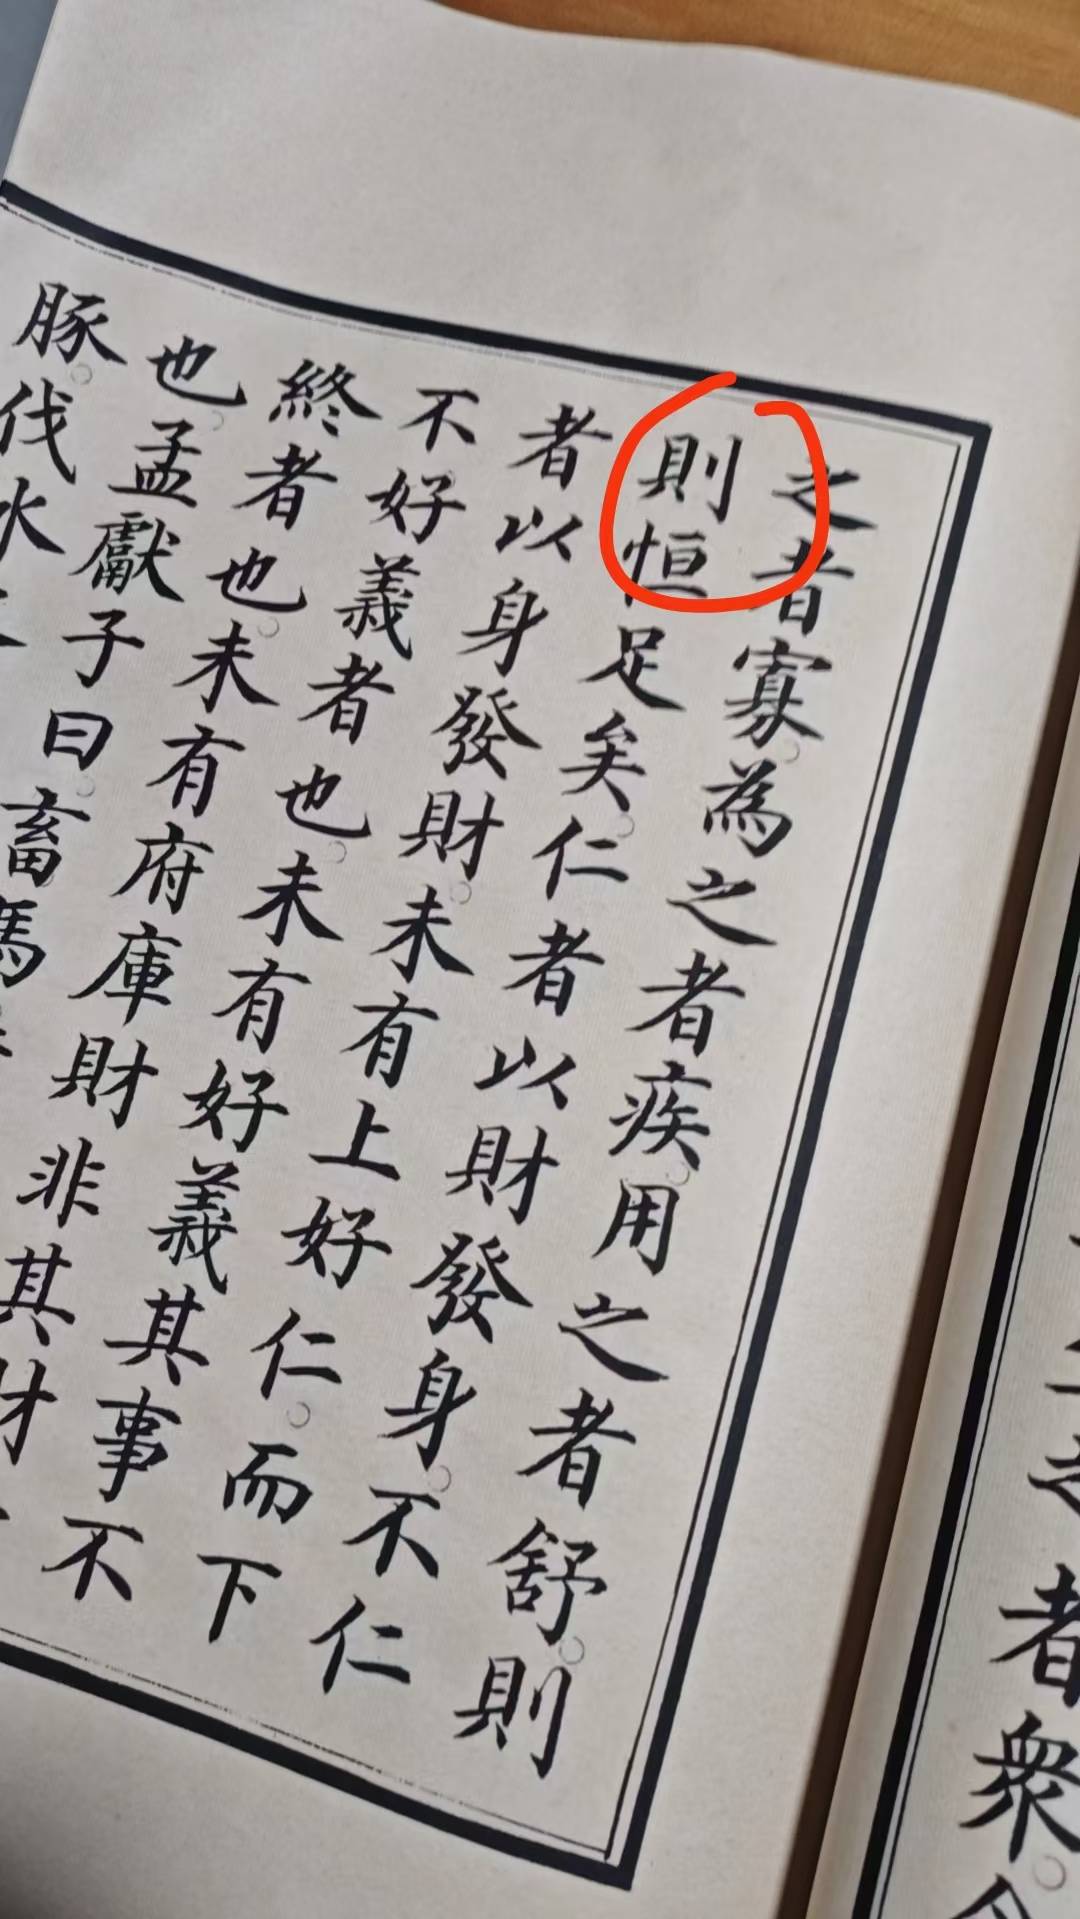 之者衆
之者寡為之者疾用之者舒則
則恒足矣仁者以財發身不仁
者以身發財未有上好仁而下
不好義者也未有好義其事不
終者也未有府庫財非其財
也孟獻子曰畜馬
豚伐冰